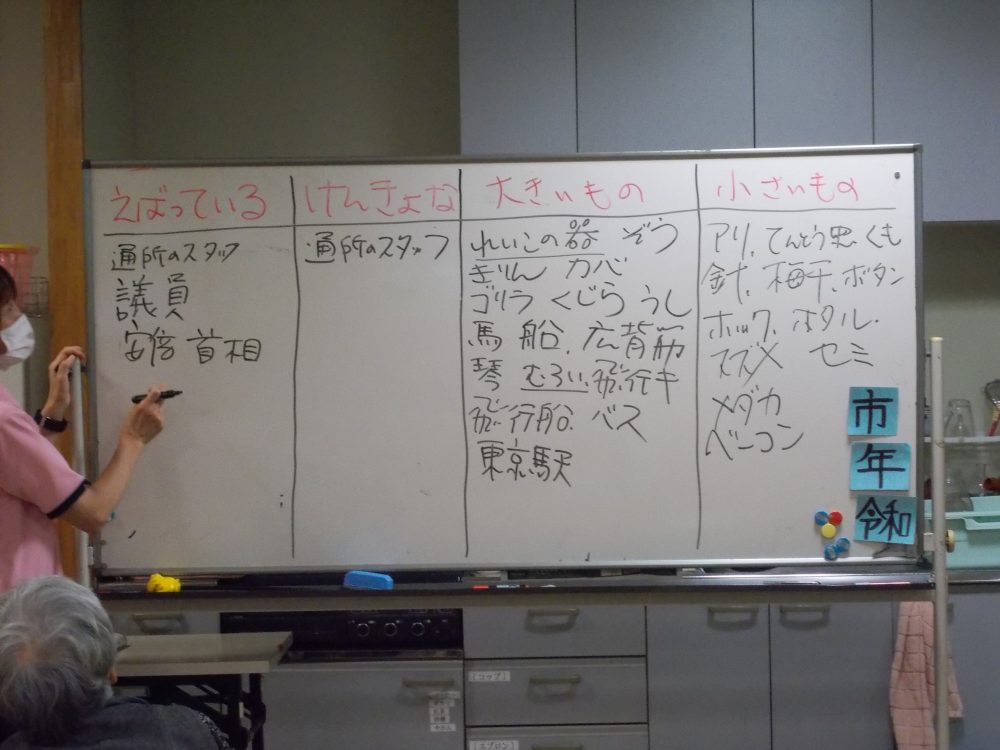 えばっている
通所のスタッフ
議員
安倍首相
けんきょな
通所のスタッフ
大きいもの
れいこの器 ぞう
きりん カバ
ゴリラ くじら うし
馬 船、広背筋
琴 むろい 飛行キ
飛行船、バス
東京駅
小さいもの
アリ、てんとう虫、くも
針、梅干、ボタン
ホック、ホタル、
スズメ セミ
メダカ
ベーコン
市
年
令和
[コップ]
[エプロン]